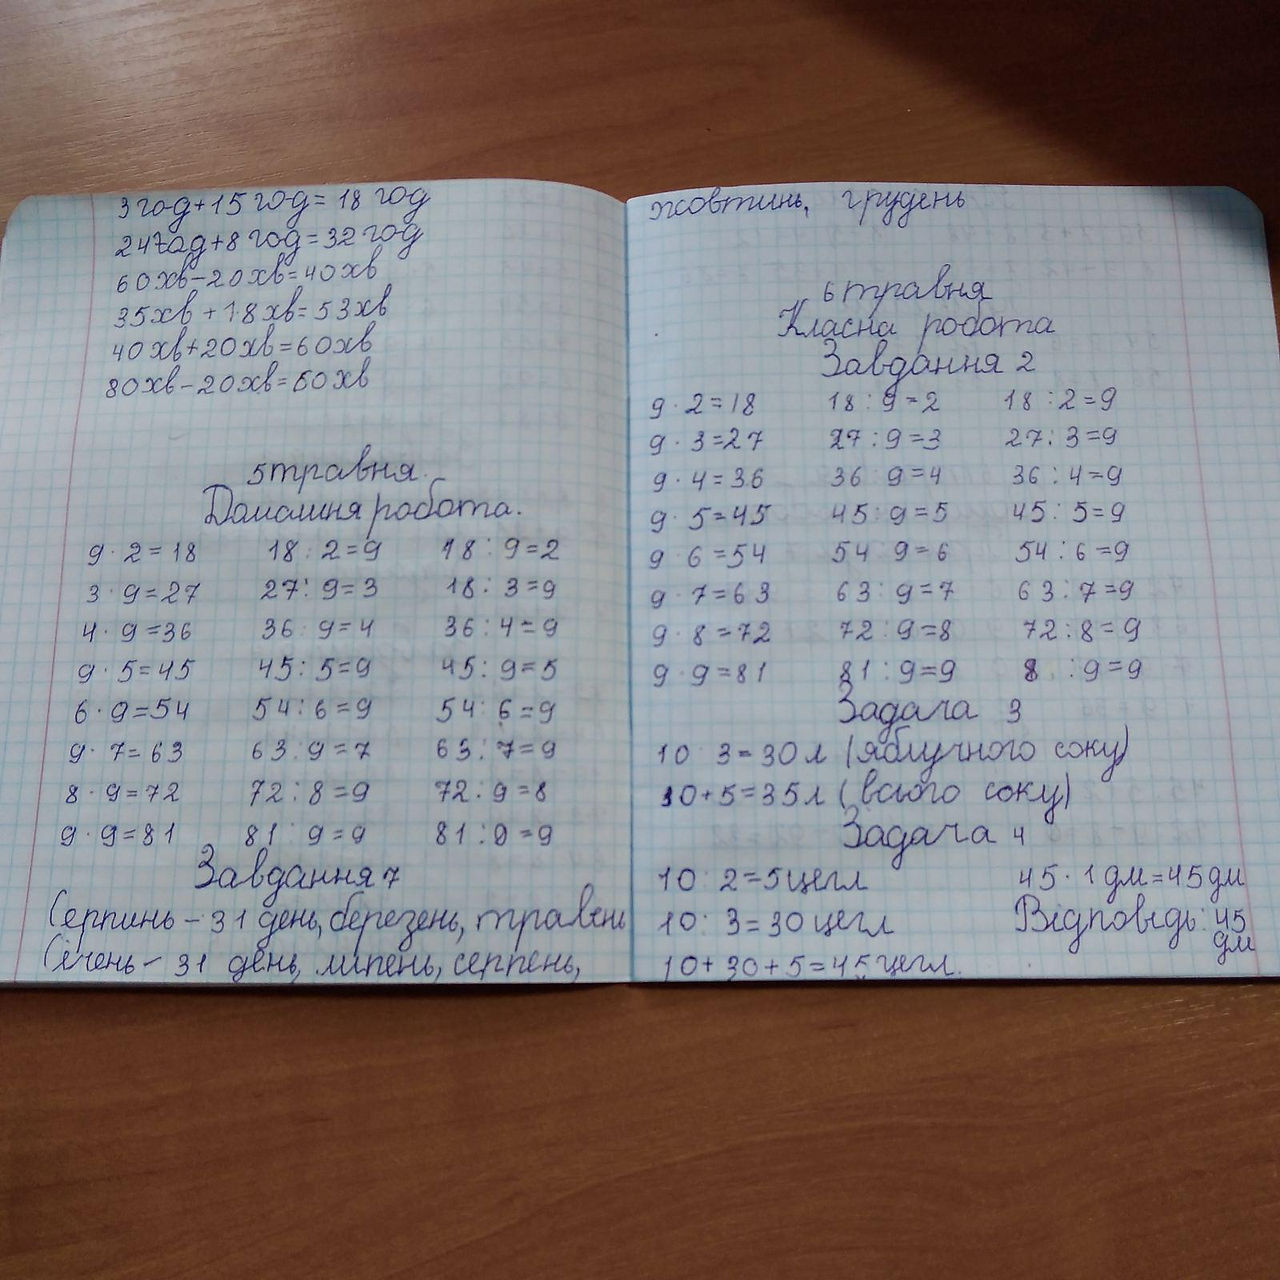 3 год+15 год=18 год
24 год+8 год=32 год
60хв-20хв=40хв
35хв+18хв=53хв
40хв+20хв=60хв
80хв-20хв=60хв
5 травня.
Домашня робота.
9·2=18 18:2=9 18:9=2
3·9=27 27:9=3 18:3=9
4·9=36 36:9=4 36:4=9
9·5=45 45:5=9 45:9=5
6·9=54 54:6=9 54:6=9
9·7=63 63:9=7 63:7=9
8·9=72 72:8=9 72:9=8
9·9=81 81:9=9 81:9=9
Завдання 7
Серпинь - 31 день, березень, травень
Січень - 31 день, липень, серпень,
жовтинь, грудень
6 травня
Класна робота
Завдання 2
9·2=18 18:9=2 18:2=9
9·3=27 27:9=3 27:3=9
9·4=36 36:9=4 36:4=9
9·5=45 45:9=5 45:5=9
9·6=54 54:9=6 54:6=9
9·7=63 63:9=7 63:7=9
9·8=72 72:9=8 72:8=9
9·9=81 81:9=9 8 :9=9
Задача 3
10·3=30 л (яблучного соку)
30+5=35 л (всього соку)
Задача 4
10:2=5 цегл 45·1 дм=45 дм
10·3=30 цегл Відповідь: 45
дм
10+30+5=45 цегл.